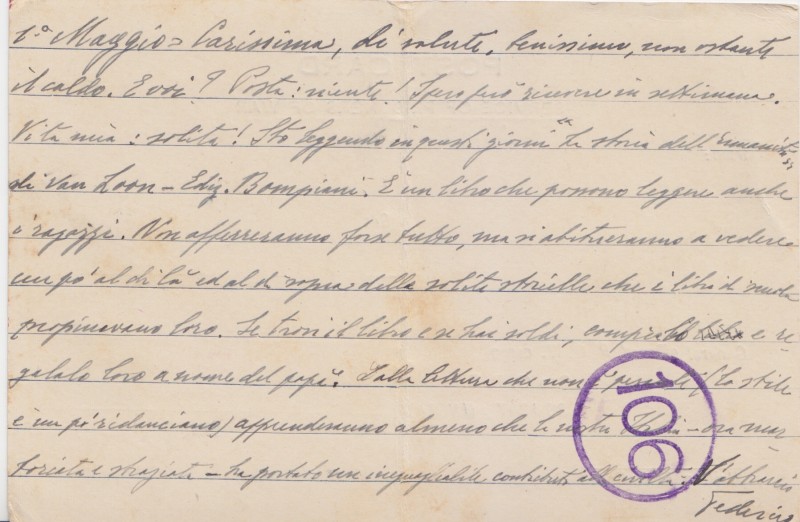 1º Maggio = Carissima, di salute, benissimo, non ostante
il caldo. E voi? Posta: niente! Spero però ricevere in settimana.
Vita mia: solita! Sto leggendo in questi giorni "La storia dell'umanità"
di Van Loon - Ediz. Bompiani. È un libro che possono leggere anche
i ragazzi. Non afferreranno forse tutto, ma si abitueranno a vedere
un pò al di là ed al di sopra delle solite storielle che i libri di scuola
propinavano loro. Se trovi il libro e se hai soldi, compralo e re-
galalo loro a nome del papà. Dalla lettura che non è pesante (lo stile
è un pò ridanciano) apprenderanno almeno che la nostra Italia - ora mar-
toriata e straziata - ha portato un ineguagliabile contributo alla civiltà. V'abbraccio
Federico
106